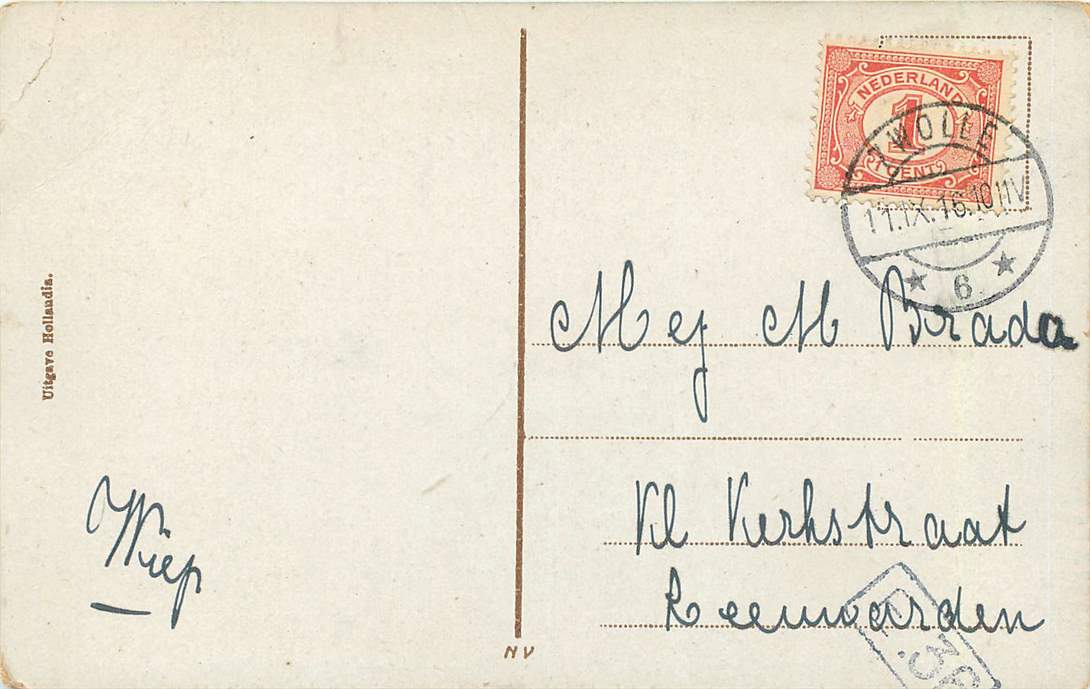 NEDERLAND
1
1 CENT
ZWOLLE
11.IX.16.10 11V
6
Mej M Brada
Kl Kerkstraat
Leeuwarden
Uitgave Hollandia.
Wiep
NV